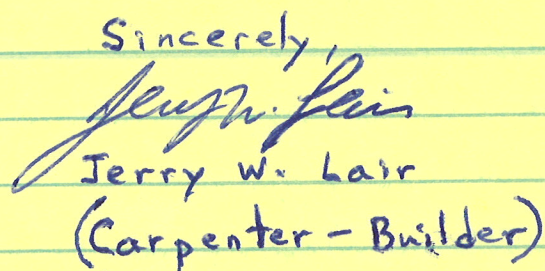 Sincerely,
Jerry W. Lair
Jerry W. Lair
(Carpenter - Builder)